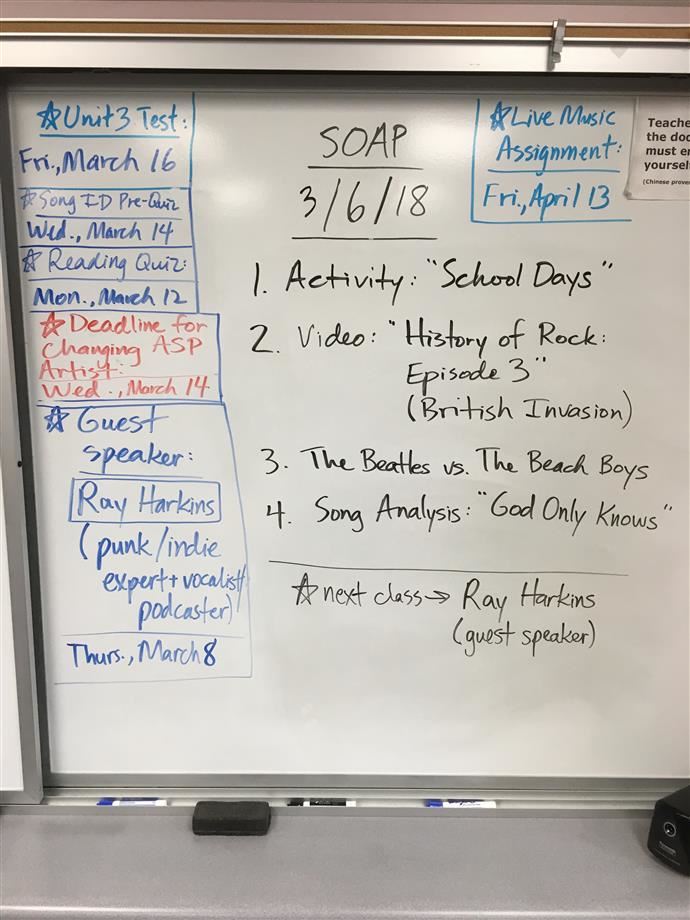 ☆Unit 3 Test:
Fri., March 16
☆Song ID Pre-Quiz
Wed., March 14
☆Reading Quiz:
Mon., March 12
☆Deadline for
Changing ASP
Artist:
Wed., March 14
☆Guest
speaker:
Ray Harkins
(punk/indie
expert+vocalist/
podcaster)
Thurs., March 8
SOAP
3/6/18
1. Activity: "School Days"
2. Video: "History of Rock:
Episode 3"
(British Invasion)
3. The Beatles vs. The Beach Boys
4. Song Analysis: "God Only Knows"
☆next class→ Ray Harkins
(guest speaker)
☆Live Music
Assignment:
Fri., April 13
Teache
the doo
must en
yoursel
(Chinese prover